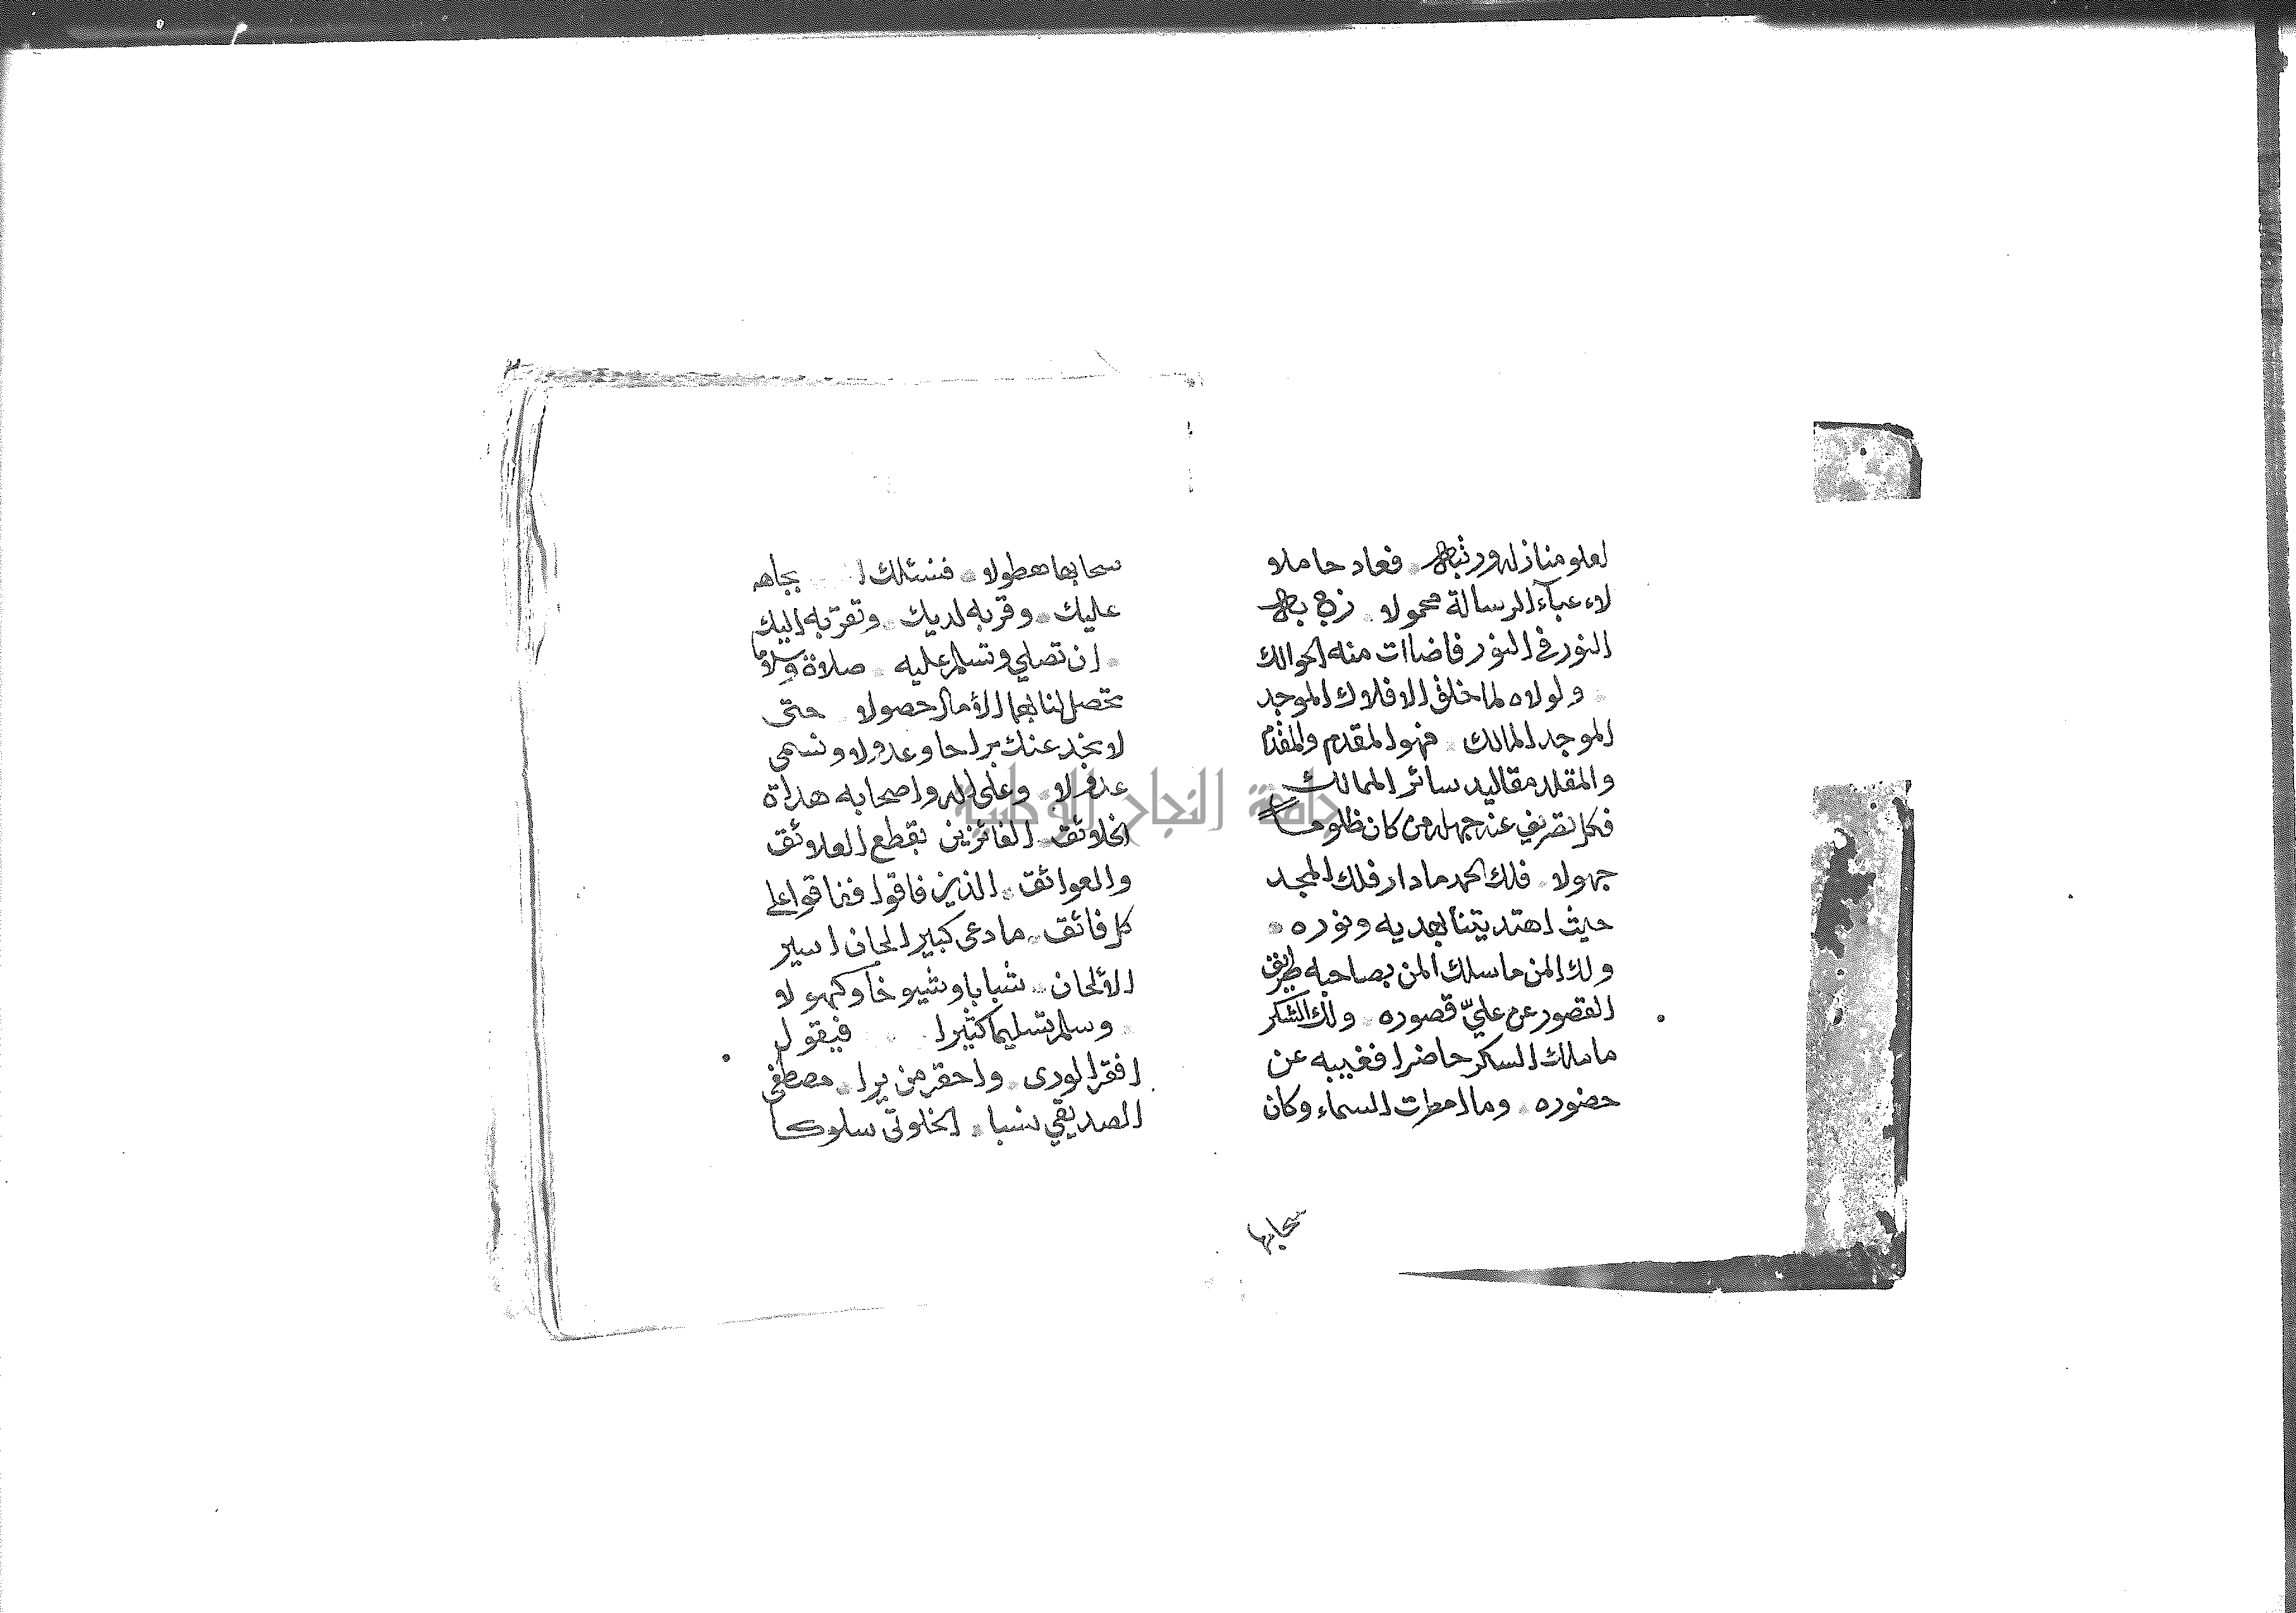 لعلو منازله ورتبه فعاد حاملا
لاء عبآء الرسالة محمولا زج به
النور في النور فاضاات منه الحوالك
ولولاه لما خلق الافلاك الموجد
الموجد المالك فهو المقدم والمقدم
والمقلد مقاليد سائر الممالك
فكل تصريف عنه جهله من كان ظلوما
جهولا فلك الحمد ما دار فلك المجد
حيث اهتديتنا بهديه ونوره
ولك المن ما سلك المن بصاحبه طريق
القصور عن عليّ قصوره ولك الشكر
ما ملك السكر حاضرا فغيبه عن
حضوره وما امطرت السماء وكان
سحابها
سحابها هطولا فنسئلك بجاهه
عليك وقربه لديك وتقربه اليك
ان تصلي وتسلم عليه صلاة وسلاما
تحصل لنا بهما الأمال حصولا حتى
لا نجد عنك براحا وعدولا ونسمى
عدولا وعلى اله واصحابه هداة
الخلائق الفائزين بقطع العلائق
والعوائق الذين فاقوا ففاقوا على
كل فائق ما دعى كبير الحان اسير
الألحان شبابا وشيوخا وكهولا
وسلم تسليما كثيرا فيقول
افقر الورى واحقر من يرا مصطفى
الصديقي نسبا الخلوتي سلوكا
جامعة النجاح الوطنية